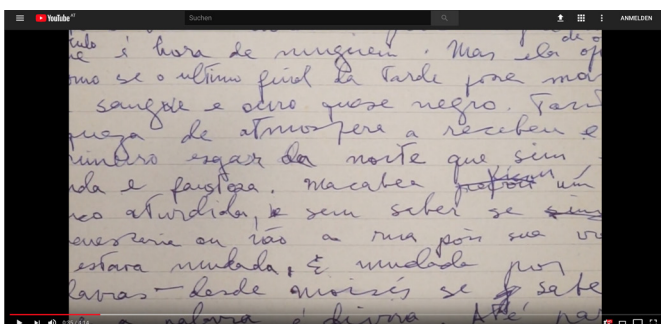 YouTube AT
Suchen
ANMELDEN
de o
é hora de ninguem. Mas ela
o ultimo final da tarde fosse
sangue e ouro quase negro.
de atmosfera a recebeu e
esgar da noite que sim
e faustosa. Macabea ficou um
aturdida, e sem saber se
ou não a rua pois sua
estava mudada. E mudada por
desde Moisés se sabe
a palavra é divina. Até
0:35 / 4:14